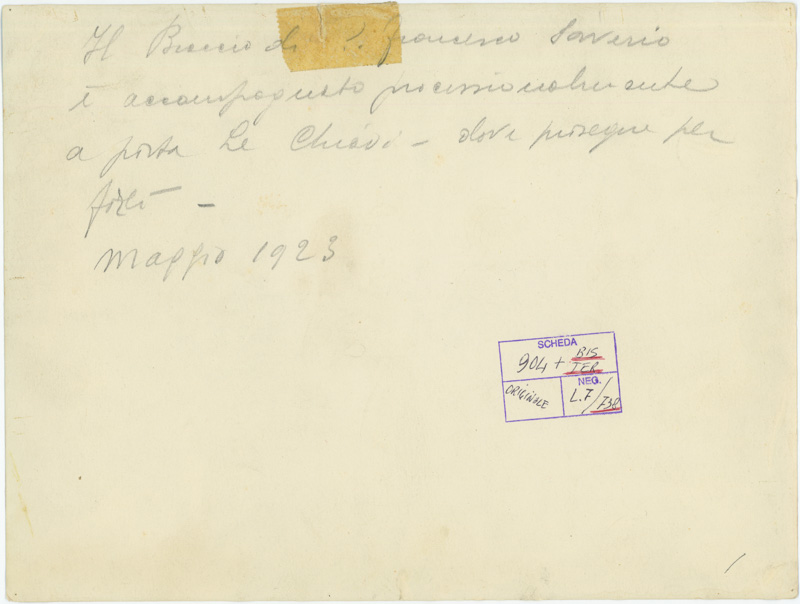 Il Braccio di S. Francesco Saverio
è accompagnato processionalmente
a porta Le Chiavi - dove prosegue per
Forlì -
Maggio 1923
SCHEDA
904 + BIS
TER
NEG.
ORIGINALE
L.7/738